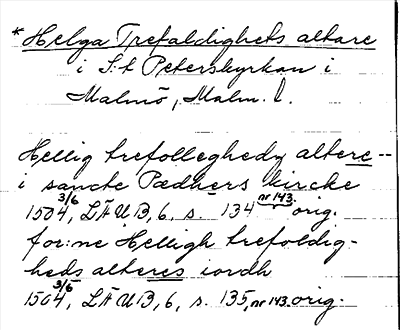 * Helga Trefaldighets altare
i S:t Peterskyrkan i
Malmö, Malm. l.
Hellig trefolleghedz altere--
i sancte Pædhers kirche
1504 3/6, LÄUB, 6, s. 134 nr 143. orig.
for:ne Helligh trefoldig-
heds alteres iordh
1504 3/6, LÄUB, 6, s. 135, nr 143. orig.